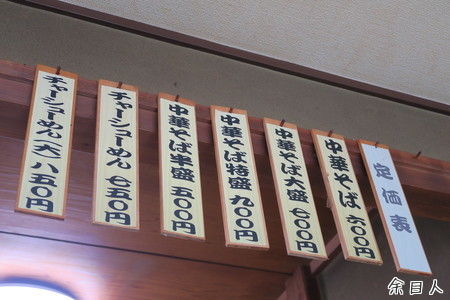 定価表
中華そば 六〇〇円
中華そば大盛 七〇〇円
中華そば特盛 九〇〇円
中華そば半盛 五〇〇円
チャーシューめん 七五〇円
チャーシューめん(大) 八五〇円
余目人